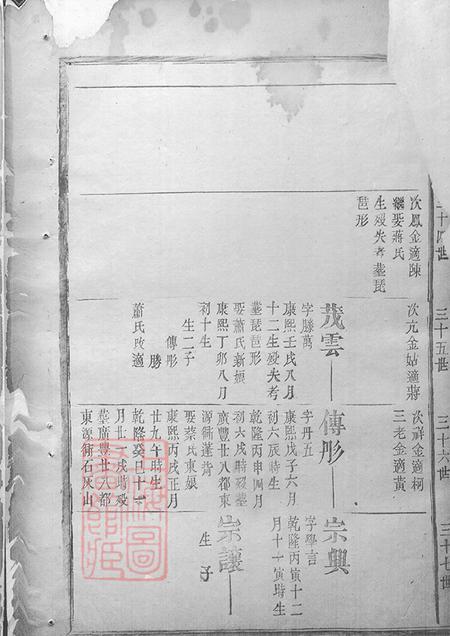 三十四世
次鳳金適陳
繼娶蔣氏
生歿失考葬琵
琶形
三十五世
次元金姑適蔣
茂雲
字勝萬
康熙壬戌八月
十二生歿失考
葬琵琶形
娶蕭氏新
康熙丁卯八月
初十生
生二子
傳彤
勝
蕭氏改適
三十六世
次祥金適柯
三老金適黃
傳彤
字丹五
康熙戊子六月
初六辰時生
乾隆丙申四月
初六戌時歿葬
廣豐廿八都東
源術蓬背
娶蔡氏東
康熙丙戌正月
廿九午時生
乾隆癸巳十一
月廿戌時歿
葬廣豐廿八都
東源術石灰山
三十七世
宗興
字學言
乾隆丙寅十二
月十一寅時生
宗讓
生 子